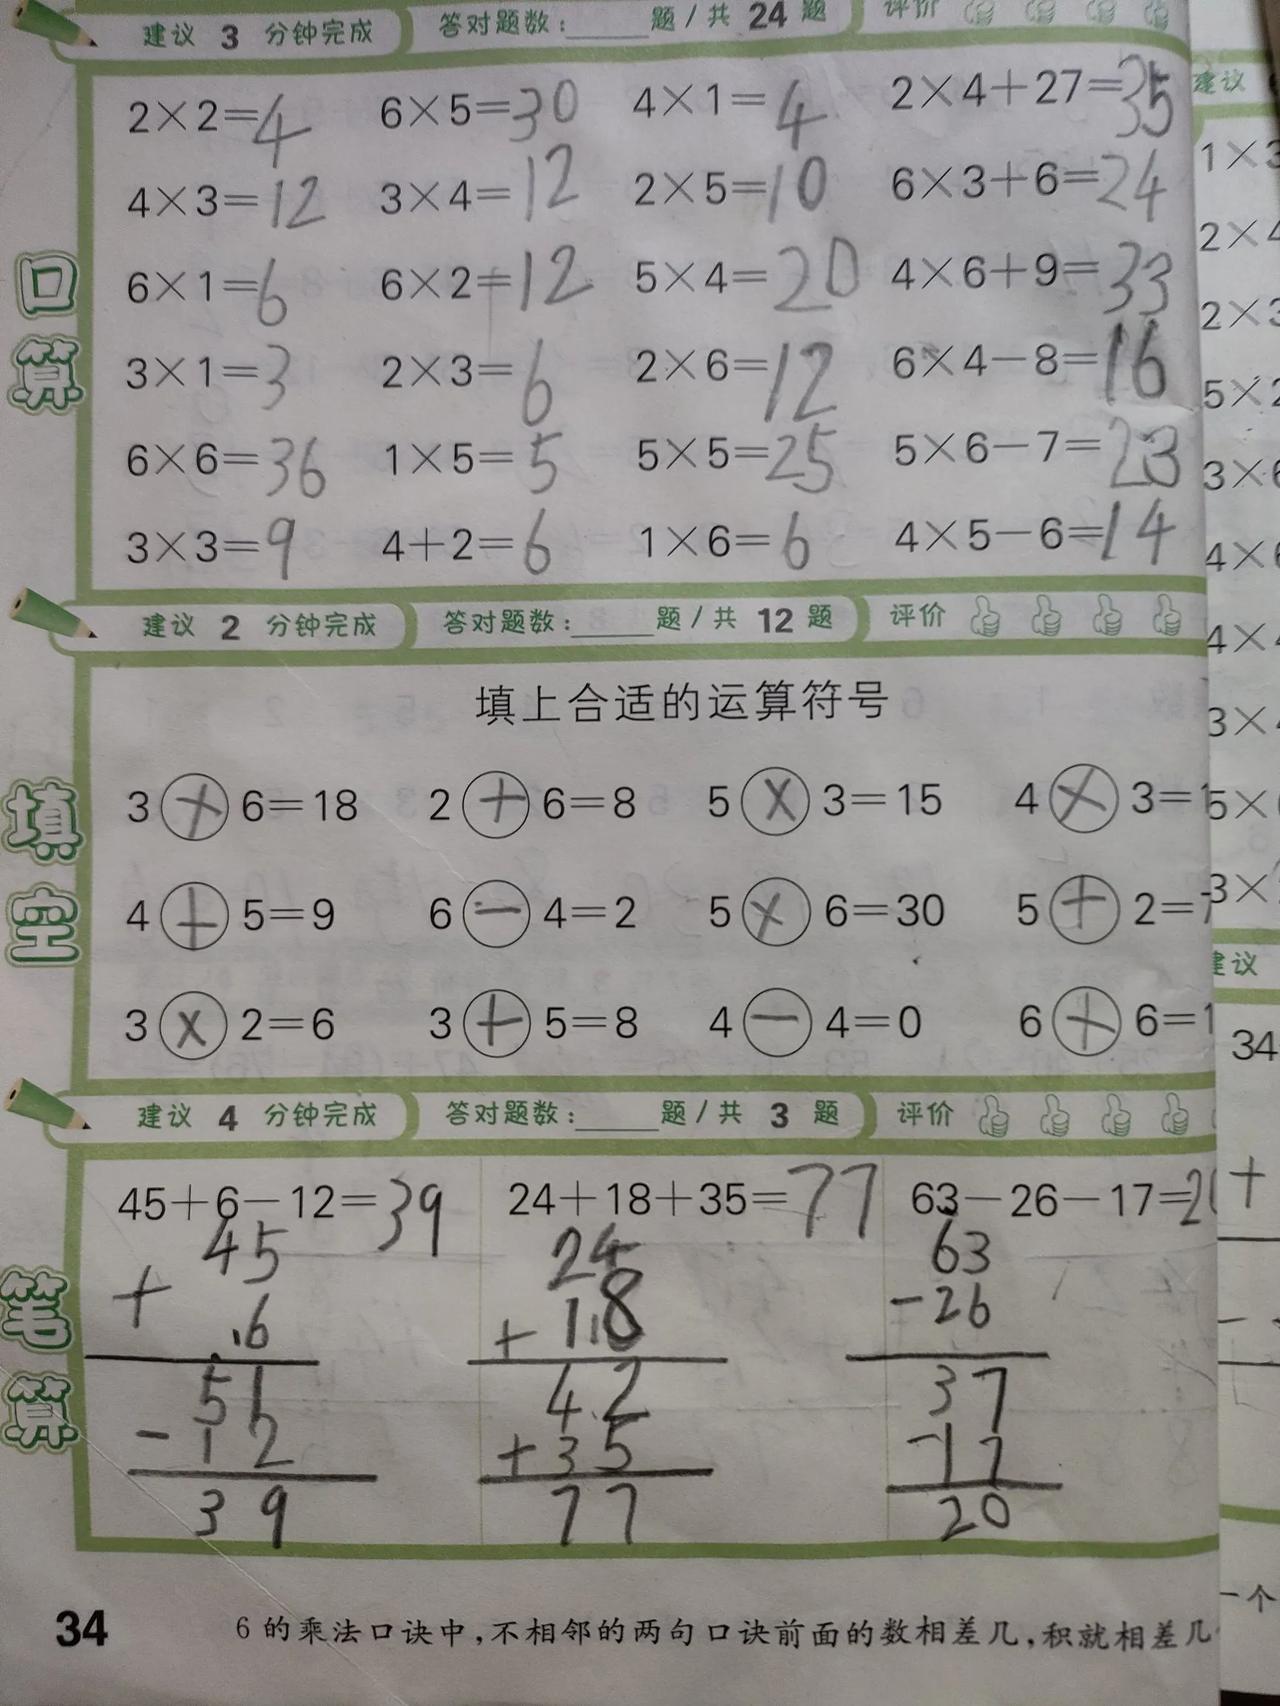 建议 3 分钟完成 答对题数：____题/共 24 题 评价
2×2=4 6×5=30 4×1=4 2×4+27=35
4×3=12 3×4=12 2×5=10 6×3+6=24
6×1=6 6×2=12 5×4=20 4×6+9=33
3×1=3 2×3=6 2×6=12 6×4-8=16
6×6=36 1×5=5 5×5=25 5×6-7=23
3×3=9 4+2=6 1×6=6 4×5-6=14
口算
建议 2 分钟完成 答对题数：____题/共 12 题 评价
填上合适的运算符号
3×6=18 2+6=8 5×3=15 4×3=1
4+5=9 6-4=2 5×6=30 5+2=
3×2=6 3+5=8 4-4=0 6+6=1
填空
建议 4 分钟完成 答对题数：____题/共 3 题 评价
45+6-12=39 24+18+35=77 63-26-17=20
45 24 63
+ 6 + 18 -26
51 42 37
-12 +35 -17
39 77 20
笔算
34 6的乘法口诀中，不相邻的两句口诀前面的数相差几，积就相差几
建议
1×3
2×4
2×3
5×2
3×6
4×6
4×
3×
5×
3×
建议
34
+
一个